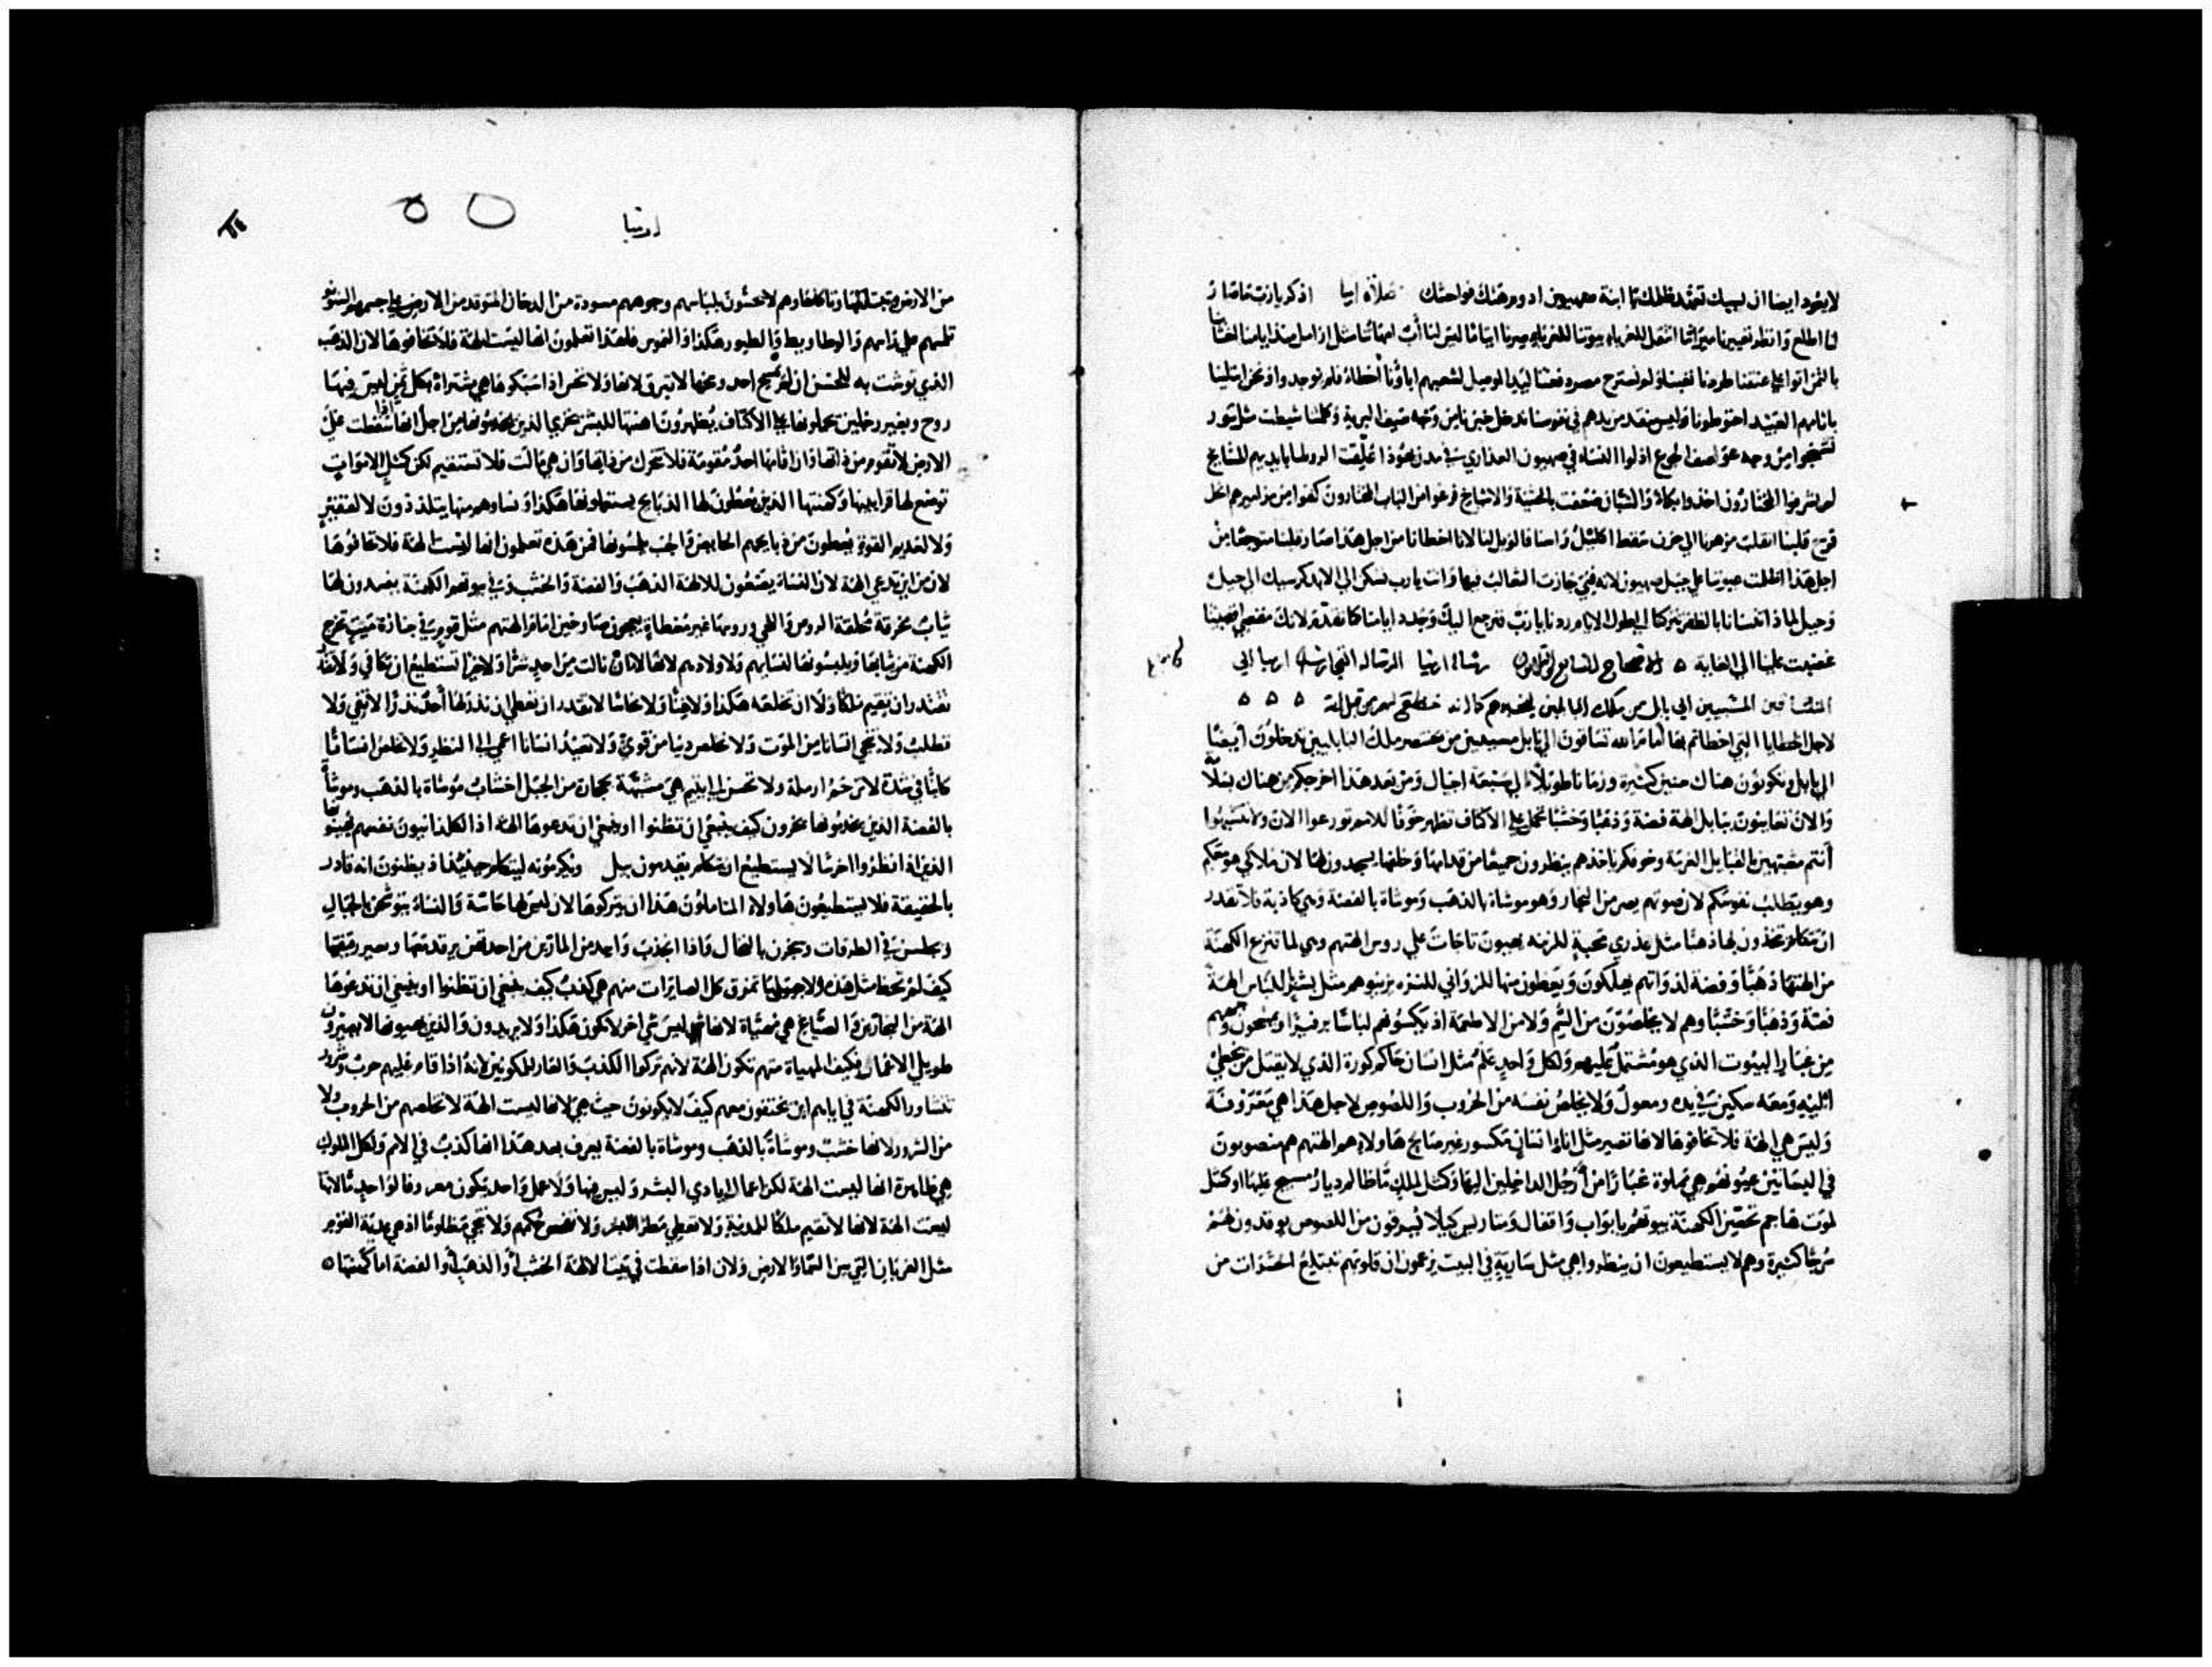 لا يعود ايضا ان يسبيك تعهد ظلمك يا ابنة صهيون ادوم هتك فواحشك صلاة ارميا اذكر يا رب ما صار
لنا اطلع وانظر تعييرنا ميراثنا انتقل للغرباء بيوتنا للغرباء صرنا ايتاما ليس لنا أب امهاتنا مثل ارامل
بالثمن اتوا على عنقنا طردنا تعبنا ولم نسترح مصر دفعنا ليد الموصل لشعبهم اباؤنا أخطاؤا فلم توجدوا ونحن
باثامهم العبيد احتوطونا وليس منقذ من يدهم في نفوسنا ندخل خبزنا من وجه سيف البرية وجلدنا
من وجه عواصف الجوع اذلوا النساء في صهيون العذاري في مدن يهوذا عُلِّقت الروسا بايديهم المشايخ
لم يشرفوا المختارون اخذوا بكاء والشبان ضعفت بالخشبة والاشياخ فرغوا من الباب المختارون كفوا من مزاميرهم انحل
فرح قلبنا انقلب مزمرنا الي حزن سقط اكليل راسنا فالويل لنا لانا اخطانا من اجل هذا صار قلبنا متوجعا من
اجل هذا اظلمت عيوننا على جبل صهيون لانه فني جازت الثعالب فيها وانت يا رب تسكن الي الابد كرسيك الي جيل
وجيل لماذا تنسانا بالظفر تتركنا الي طول الايام ردنا يا رب فنرجع اليك وجدد ايامنا كما تقدم لانك مقصي اقصيتنا
غضبت علينا الي الغاية ه الاصحاح التاسع والثلاثون رسالة ارميا الرسالة التي ارسل ارميا الي
المسبيين الي بابل من ملك البابليين ليخبرهم كما انه من قبل الله ه ه ه
لاجل الخطايا التي اخطاتم بها أمام الله تساقون الي بابل مسبيين من بختنصر ملك البابليين تدخلون أيضا
الي بابل وتكونون هناك سنين كثيرة وزمانا طويلا الي سبعة اجيال ومن بعد هذا اخرجكم من هناك بسلامة
والان تعاينون ببابل الهة فضة وذهبا وخشبا تحمل على الاكتاف تظهر خوفا للامم تورعوا الان ولا تتشبهوا
أنتم مشبهين بالقبايل الغريبة وخوفكم ياخذهم ينظرون جميعا من قدامها وخلفها يسجدون لها لان ملاكي هو معكم
وهو يتطلب نفوسكم لان صوتهم يصر من النجار وهو موشاة بالذهب وموشاة بالفضة وهي كاذبة فلا تقدر
ان تتكلم تخذون لها ذهبا مثل عذري محبة للزينة يصيبون تاجات على روس الهتهم ومهي لما تنزع الكهنة
من الهتها ذهبا وفضة لذواتهم يهلكون ويعطون منها للزواني للنزه يزينوهم مثل بشر للباس الهة
فضة وذهبا وخشبا وهم لا يخلصون من السم ولا من الاطعمة اذ يكسوهم لباسا برفيرا ويمسحون وجههم
من غبار البيوت الذي هو مشتمل عليهم ولكل واحد علم مثل انسان حاكم كورة الذي لا يقتل من يخطي
اليه ومعه سكين في يده ومعول ولا يخلص نفسه من الحروب واللصوص لاجل هذا هي معروفة
وليس هي الهة فلا تخافوها لانها تصير مثل اناء انسان مكسور غير صالح هاولاء هم الهتهم هم منصوبون
في البساتين عيونهم هي مملوة غبارا من أرجل الداخلين اليها وكمثل الملك
لموت هاجم تحصن الكهنة بيوتهم بابواب واقفال ومتاريس كيلا يسرقون من اللصوص يوقدون لهم
سرجا كثيرة وهم لا يستطيعون ان ينظروا هي مثل سارية في البيت يزعمون ان قلوبهم تبتلع الحشرات من
ارميا
من الارض وتبتلعها وتاكلها وهم لا يحسون بلباسهم وجوههم مسودة من الدخان المتوقد من الارض على جسمهم
على راسهم والوطاويط والطيور هكذا والنموس فلهذا تعلمون انها ليست الهة فلا تخافوها لان الذهب
الذي توشت به للحسن ان لم يمسح احد وسخها لا تبرق لانها ولا تحس اذا سبكوها هي مشتراة بكل ثمن ليس فيها
روح وبغير رجلين يحملونها على الاكتاف يظهرون اهانتها للبشر يخزي الذين يخدمونها من اجل انها اذا سقطت على
الارض لا تقوم من ذاتها واذا اقامها احد مقومة فلا تتحرك من ذاتها وان هي مالت فلا تستقيم لكن كمثل الاموات
توضع لها قرابينها وكهنتها الذين يعطون لها الذبايح يستعملونها هكذا ونساوهم منها يتلذذون لا لفقير
ولا لعديم القوة يعطون من ذبايحهم الحايض والجنب يلمسونها فمن هذه تعلمون انها ليست الهة فلا تخافوها
لان من اين تدعي الهة لان النساء يضعون للالهة الذهب والفضة والخشب وفي بيوتهم الكهنة يفسدون لها
ثياب مخرقة محلقة الروس واللحي وروسها غير مغطاة يعجون صارخين امام الهتهم مثل قوم في جنازة ميت تخرج
الكهنة من ثيابها ويلبسونها لنسايهم ولاولادهم لانها لا ان نالت من احد شرا ولا خيرا تستطيع ان تكافي ولا
تقتدر ان تقيم ملكا ولا ان تخلعه هكذا ولا غنا ولا نحاسا لا تقدر ان تعطي ان نذر لها أحد نذرا لا تفي ولا
تطلب ولا تنجي انسانا من الموت ولا تخلص دنيا من قوي ولا تعيد انسانا اعمي الي النظر ولا تخلص انسانا
كاينا في شدة لا ترحم ارملة ولا تحسن الي يتيم هي مشبهة بحجارة من الجبل اخشاب موشاة بالذهب وموشاة
بالفضة الذين يخدمونها يخزون كيف ينبغي ان تظنوا او ينبغي ان تدعوها الهة اذ الكلدانيون نفسهم يهينونها
الذين اذا نظروا اخرسا لا يستطيع ان يتكلم يقدمون بيل ويكرمونه ليتكلم حينئذ اذ يظنون انه قادر
بالحقيقة فلا يستطيعون هاولاء المتاملون هذا ان يتركوها لان ليس لها حاسة والنساء يتوشحن بالحبال
ويجلسن في الطرقات ويبخرن بالنخال واذا انجذب واحد من المارين من احد تقص برقدتها وتعير رفيقتها
كيف لم تحظ مثل هذه ولا حبلها تمزق كل الصايرات منهم هي كذب كيف ينبغي ان تظنوا او ينبغي ان تدعوها
الهة من النجارين والصياغ هي مهياة لانها ليس شي اخر لا تكون هكذا ولا يريدون والذين يهيونها لا يصيرون
طويلي الاعمار فكيف المهياة منهم تكون الهة لانهم تركوا الكذب والعار للمكونين لانه اذا قام عليهم حرب وشرور
تتشاور الكهنة في ايامهم اين يختفون معهم كيف لا يكونون حيث هي لانها ليست الهة لا تخلصهم من الحروب ولا
من الشرور لانها خشب وموشاة بالذهب وموشاة بالفضة يعرف بعد هذا انها كذب في الامم ولكل الملوك
هي ظاهرة انها ليست الهة لكن اعمال ايادي البشر وليس فيها ولا عمل واحد يكون معروفا لواحد
ليست الهة لانها لا تقيم ملكا للمدينة ولا تعطي مطرا للبشر ولا تفحص حكمهم ولا تنجي مظلوما اذ هي عديمة القوة
مثل الغربان التي بين السما والارض ولان اذا سقطت في بيت الالهة الخشب أو الذهب أو الفضة اما كهنتها ه